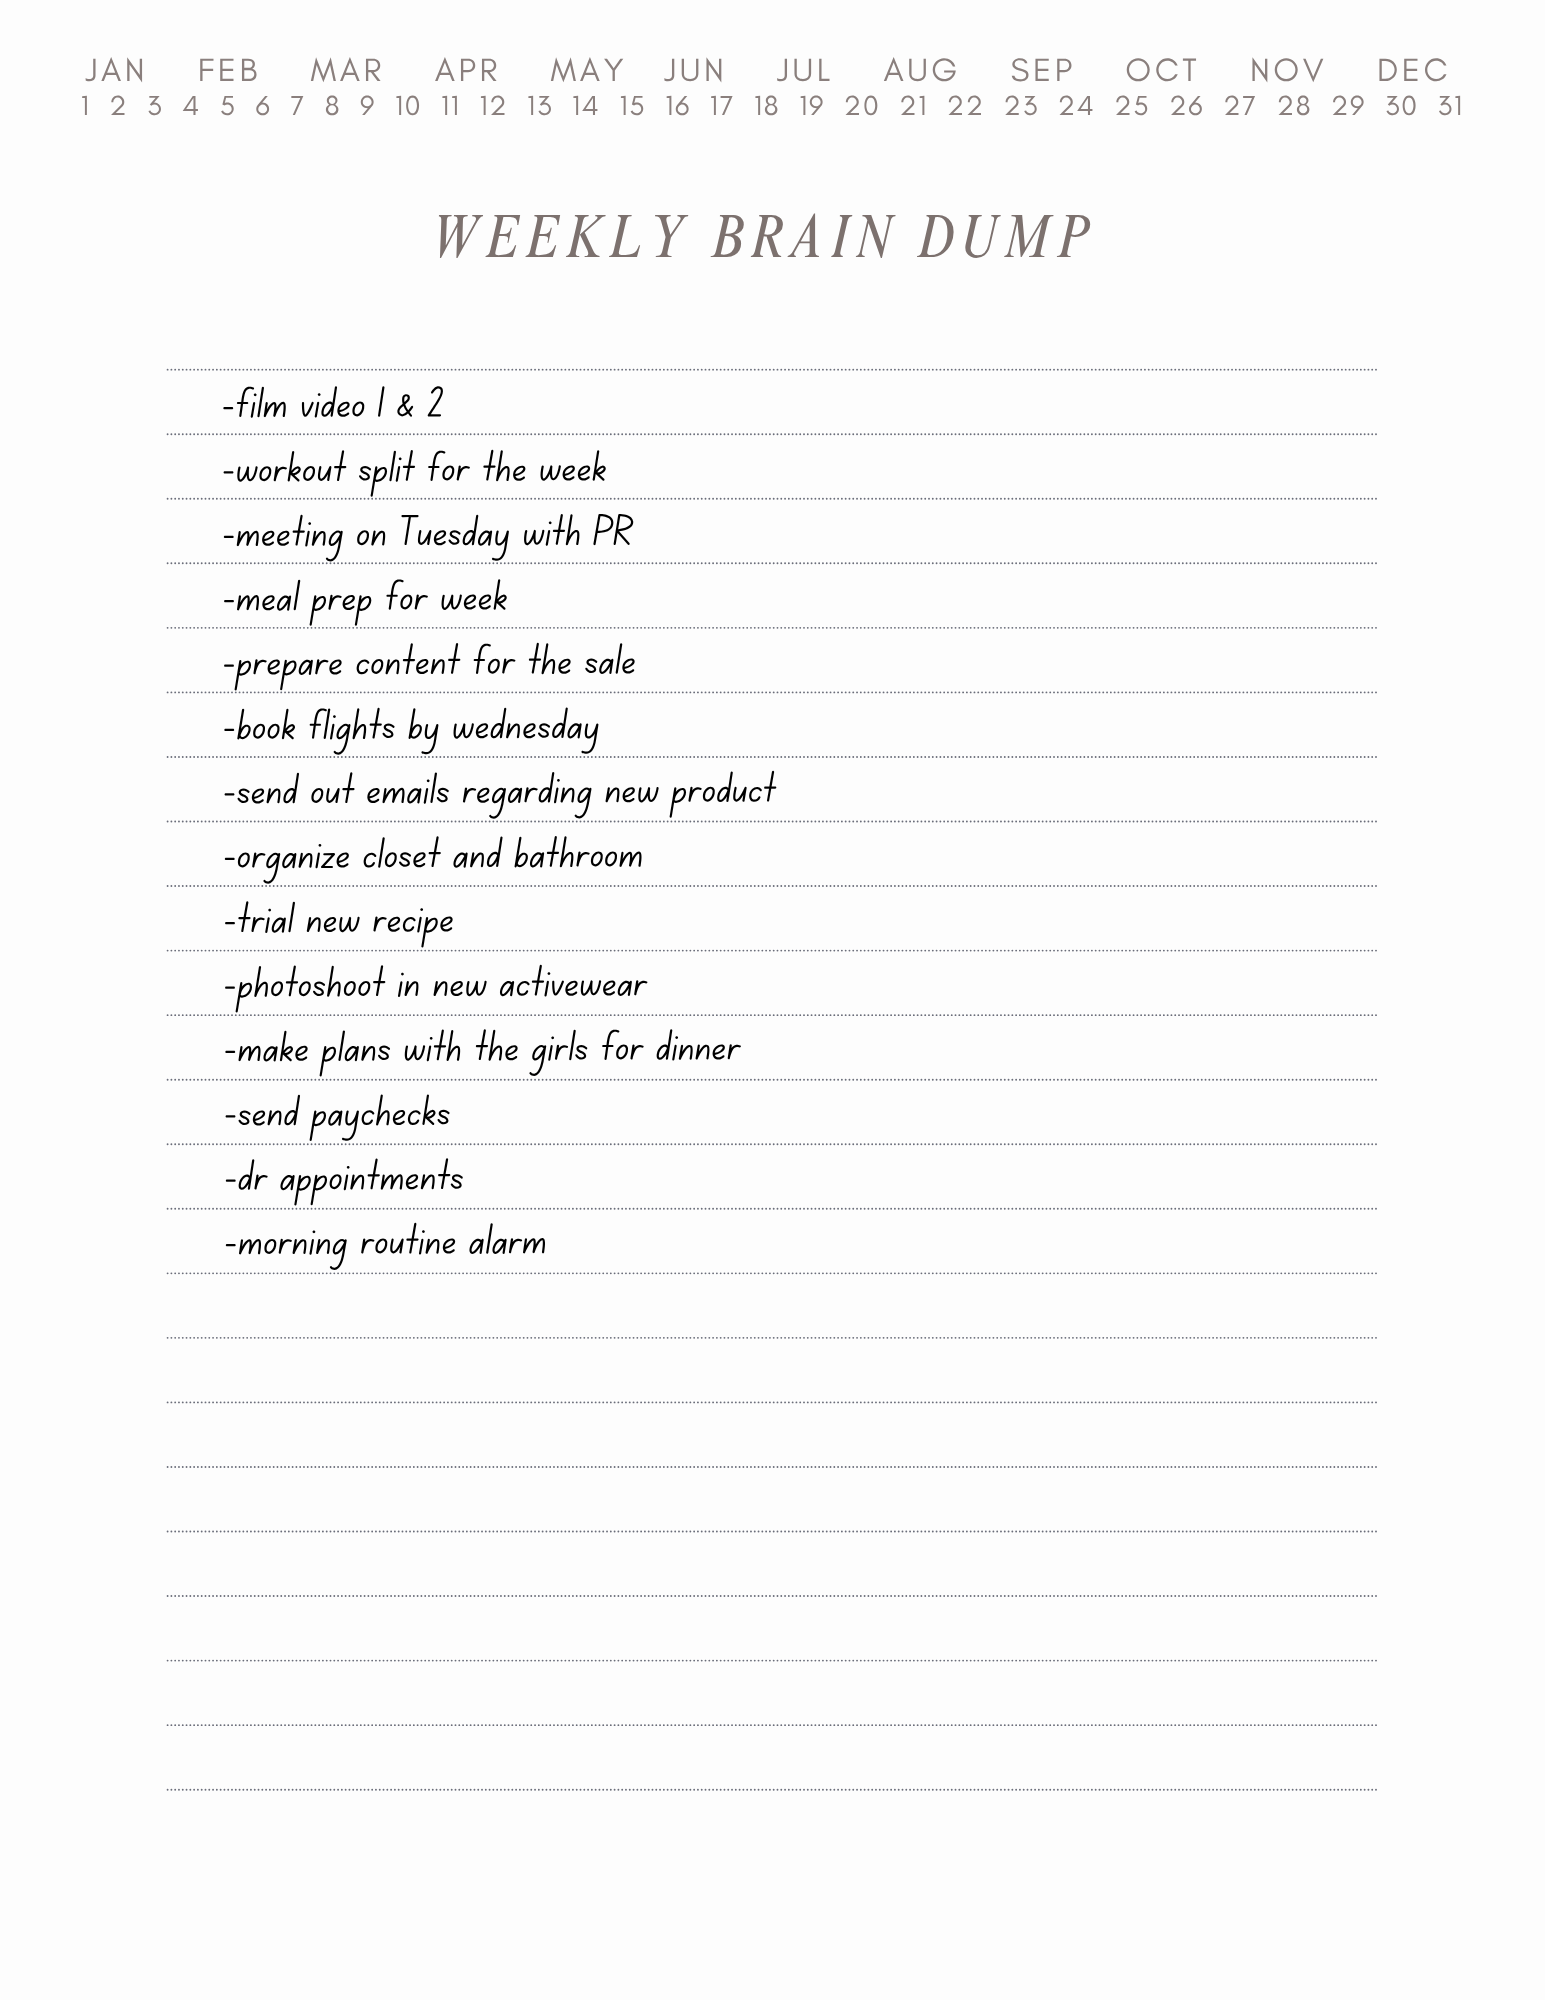 JAN FEB MAR APR MAY JUN JUL AUG SEP OCT NOV DEC
1 2 3 4 5 6 7 8 9 10 11 12 13 14 15 16 17 18 19 20 21 22 23 24 25 26 27 28 29 30 31
WEEKLY BRAIN DUMP
-film video 1 & 2
-workout split for the week
-meeting on Tuesday with PR
-meal prep for week
-prepare content for the sale
-book flights by wednesday
-send out emails regarding new product
-organize closet and bathroom
-trial new recipe
-photoshoot in new activewear
-make plans with the girls for dinner
-send paychecks
-dr appointments
-morning routine alarm